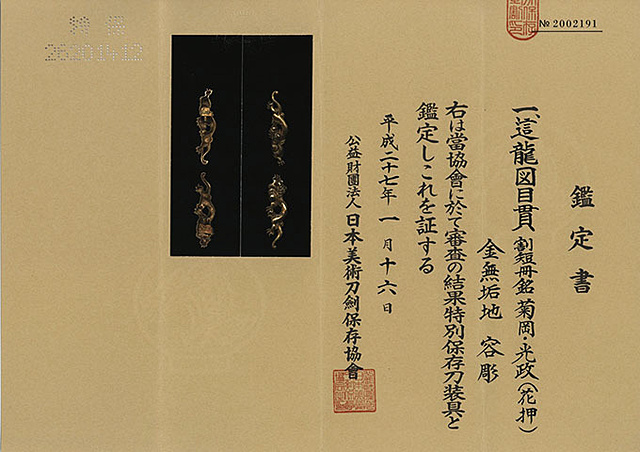 № 2002191
鑑定書
一、這龍図目貫 割短冊銘 菊岡・光政(花押)
金無垢地 容彫
右は當協會に於て審査の結果特別保存刀装具と
鑑定しこれを証する
平成二十七年一月十六日
公益財團法人 日本美術刀剣保存協會
特保
26201412